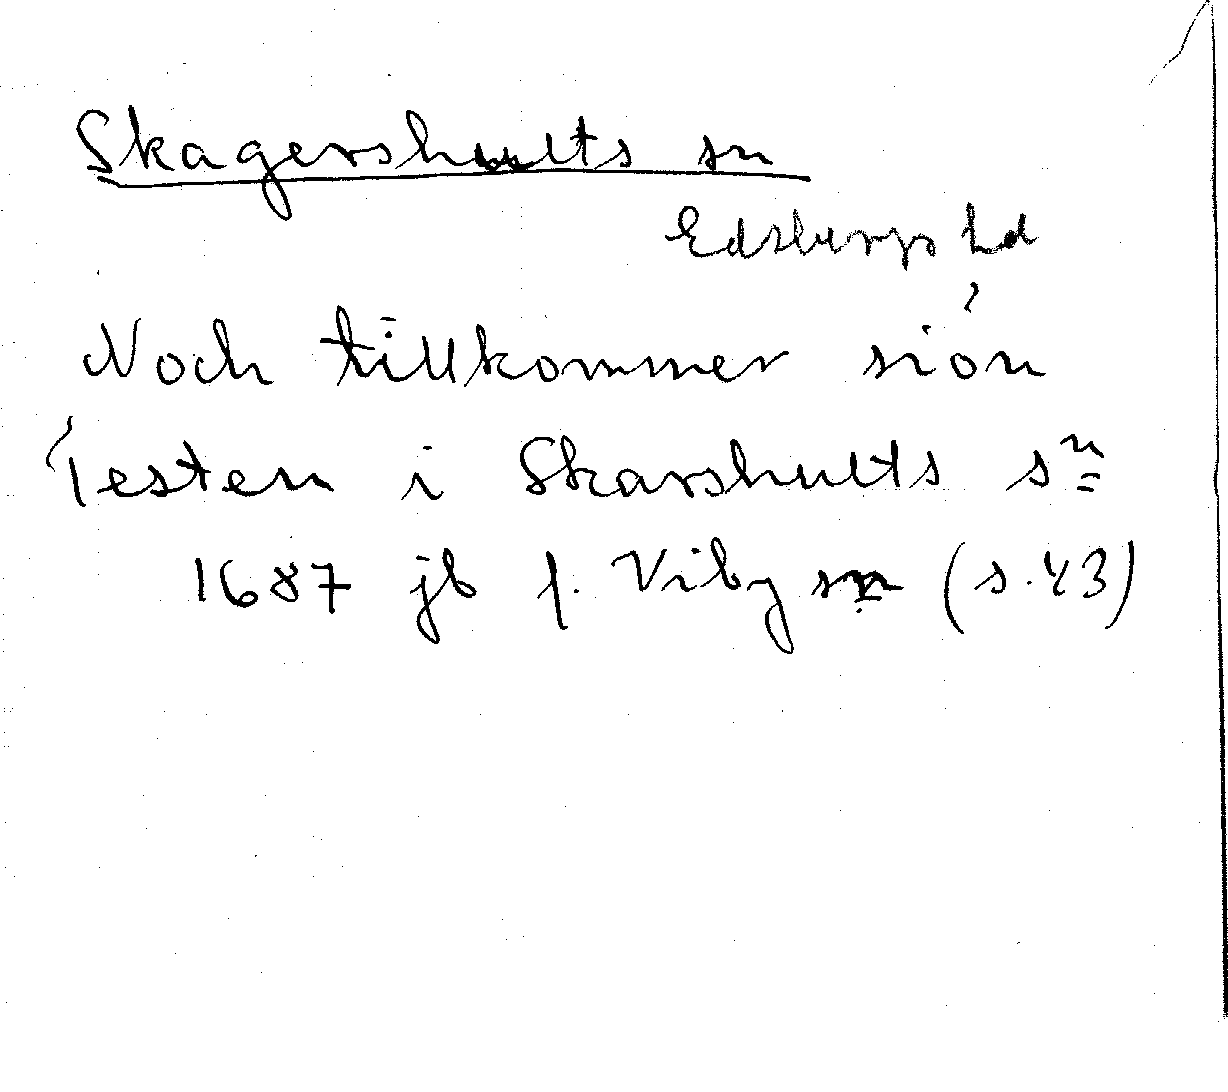 Skagershults sn
Edsbergs hd
Noch tillkommer siön
Testen i Skarshults sn
1687 jb f. Viby sn (s. 43)